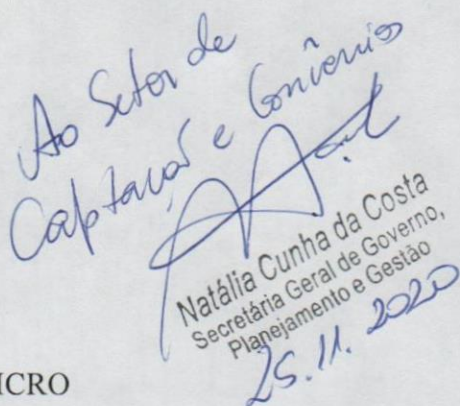 Ao Setor de
Captação e Convênios
Natália Cunha da Costa
Secretária Geral de Governo,
Planejamento e Gestão
25.11.2020
ICRO